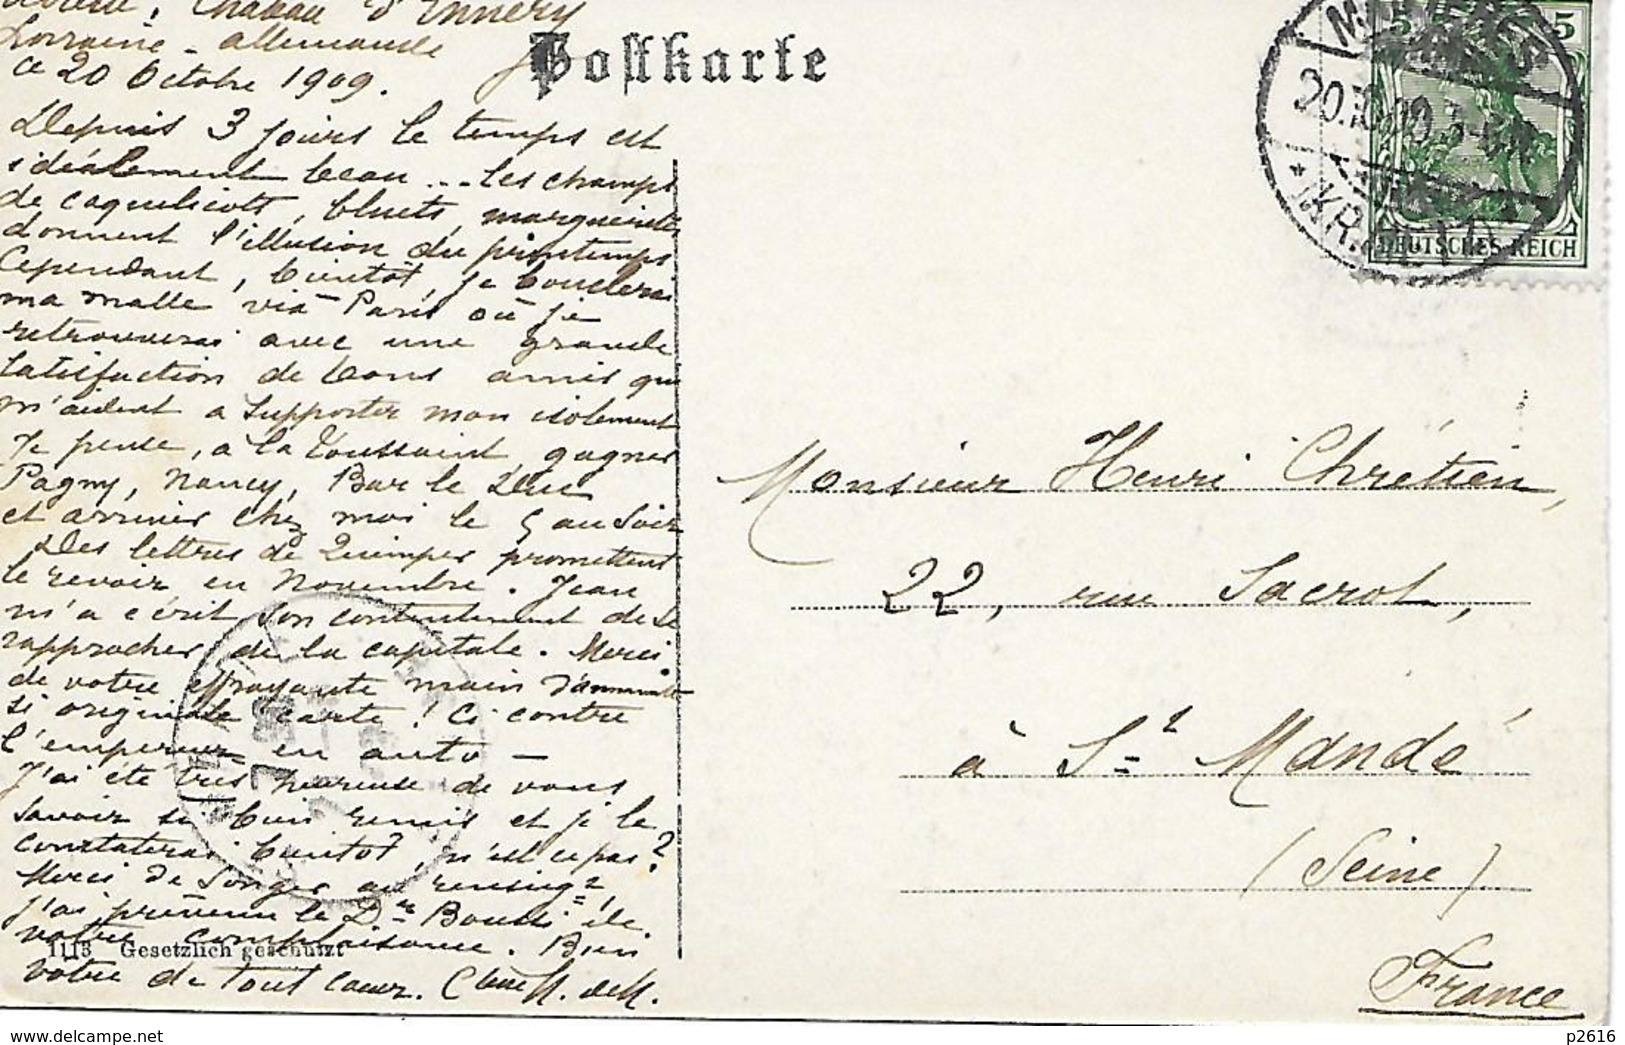 Château d'Ennery
Lorraine - allemande
Postkarte
ce 20 Octobre 1909.
Depuis 3 jours le temps est
idéalement beau ... les champs
de coquelicots, bluets, marguerites
donnent l'illusion du printemps
Cependant, bientôt, je bouclerai
ma malle via Paris où je
retrouverai avec une grande
satisfaction de bons amis qui
m'aident à supporter mon isolement
Je pense, à la Toussaint, gagner
Pagny, Nancy, Bar le Duc
et arriver chez moi le 5 au soir
Des lettres de Quimper promettent
le revoir en Novembre. Jean
m'a écrit son contentement de se
rapprocher de la capitale. Merci
de votre effrayante main
si originale carte! Ci contre
l'empereur en auto -
J'ai été très heureuse de vous
savoir si bien remis et je le
constaterai bientôt, n'est ce pas?
Merci de songer au renseigt,
j'ai prévenu le Dr de
votre complaisance. Bien
votre de tout coeur.
1113 Gesetzlich geschützt
5 5
20.10.09
DEUTSCHES REICH
Monsieur Henri Chrétien,
22, rue Sacrot,
à St Mandé
(Seine)
France
p2616